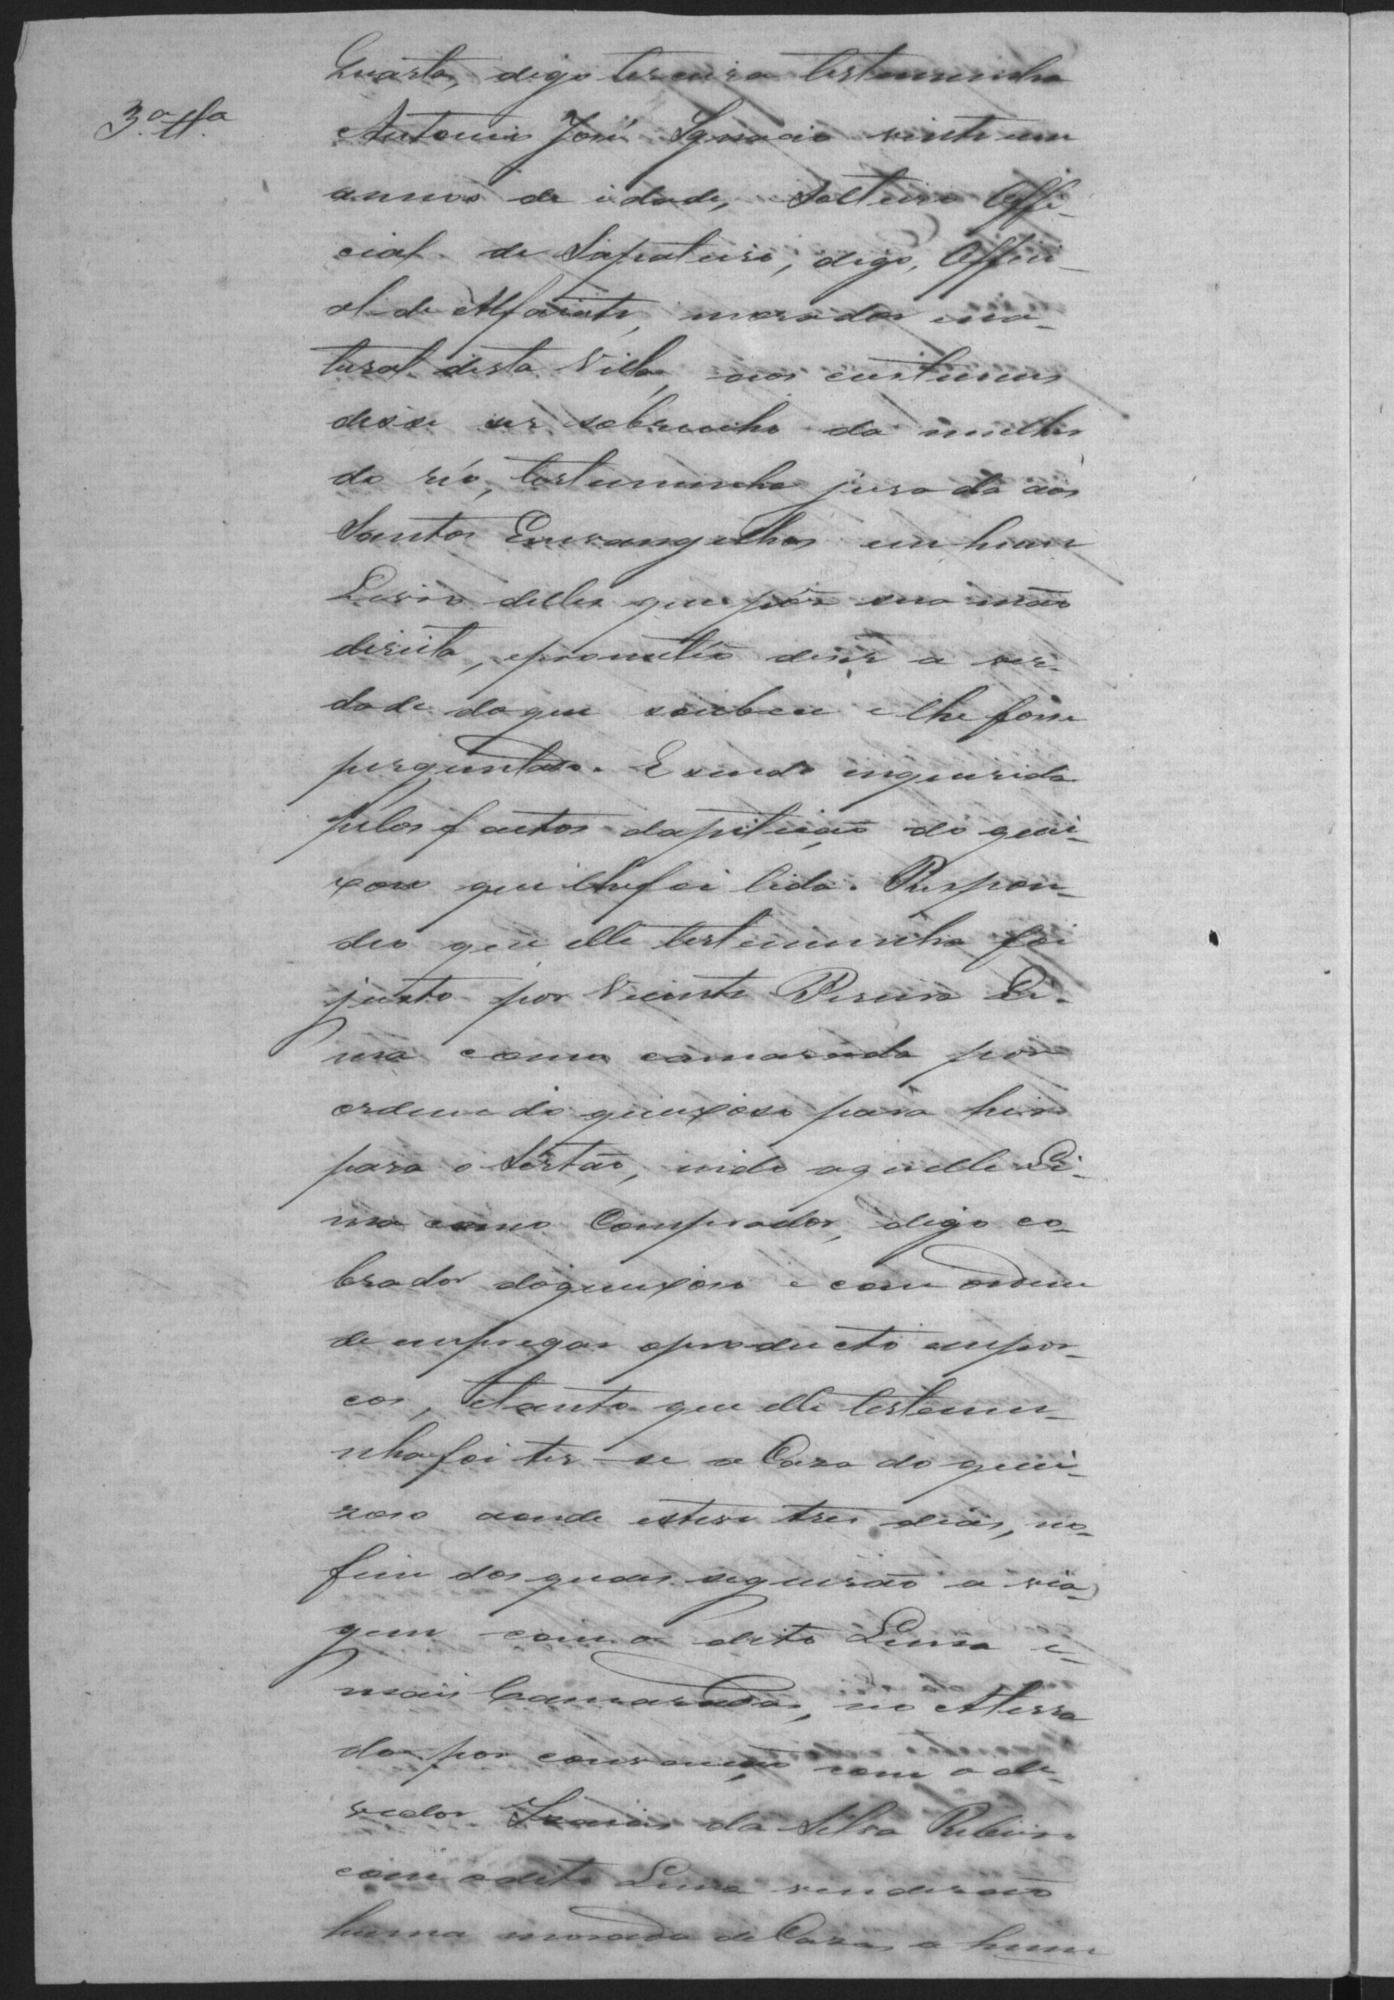 Quarta, digo terceira testemunha
3.a tta
Antonio José Ignacio vinte um
annos de idade, Solteiro Offi-
cial de Sapateiro, digo, Offici-
al de Alfaiate, morador e na-
tural desta Villa, aos custumes
disse ser sobrinho da mulher
do réo, testemunha jurada aos
Santos Euvangelhos em hum
Livro delles que pôs sua mão
direita, eprometeo diser a ver-
dade doque soubece e lhe fosse
perguntado. E sendo inquerida
pelos factos dapitição do quei-
xoso que lhefoi lida. Respon-
deo que elle testemunha foi
justo por Vicente Pereira Li-
ma como camarada por
ordem do queixoso para hir
para o Sertão, indo aquelle Li-
ma como Comprador, digo co-
brador doqueixoso e com ordem
de empregar oproducto empor-
cos, etanto que elle testemu-
nhafoi ter-se a Caza do quei-
xoso aonde esteve tres dias, no
fim dos quaes seguirão a via-
gem com o dito Lima e
mais Camaradas, no Aterra
do por convenção com o de-
vedor Izaias da Silva Ribeiro
com odito Lima venderão
huma morada de Cazas a hum